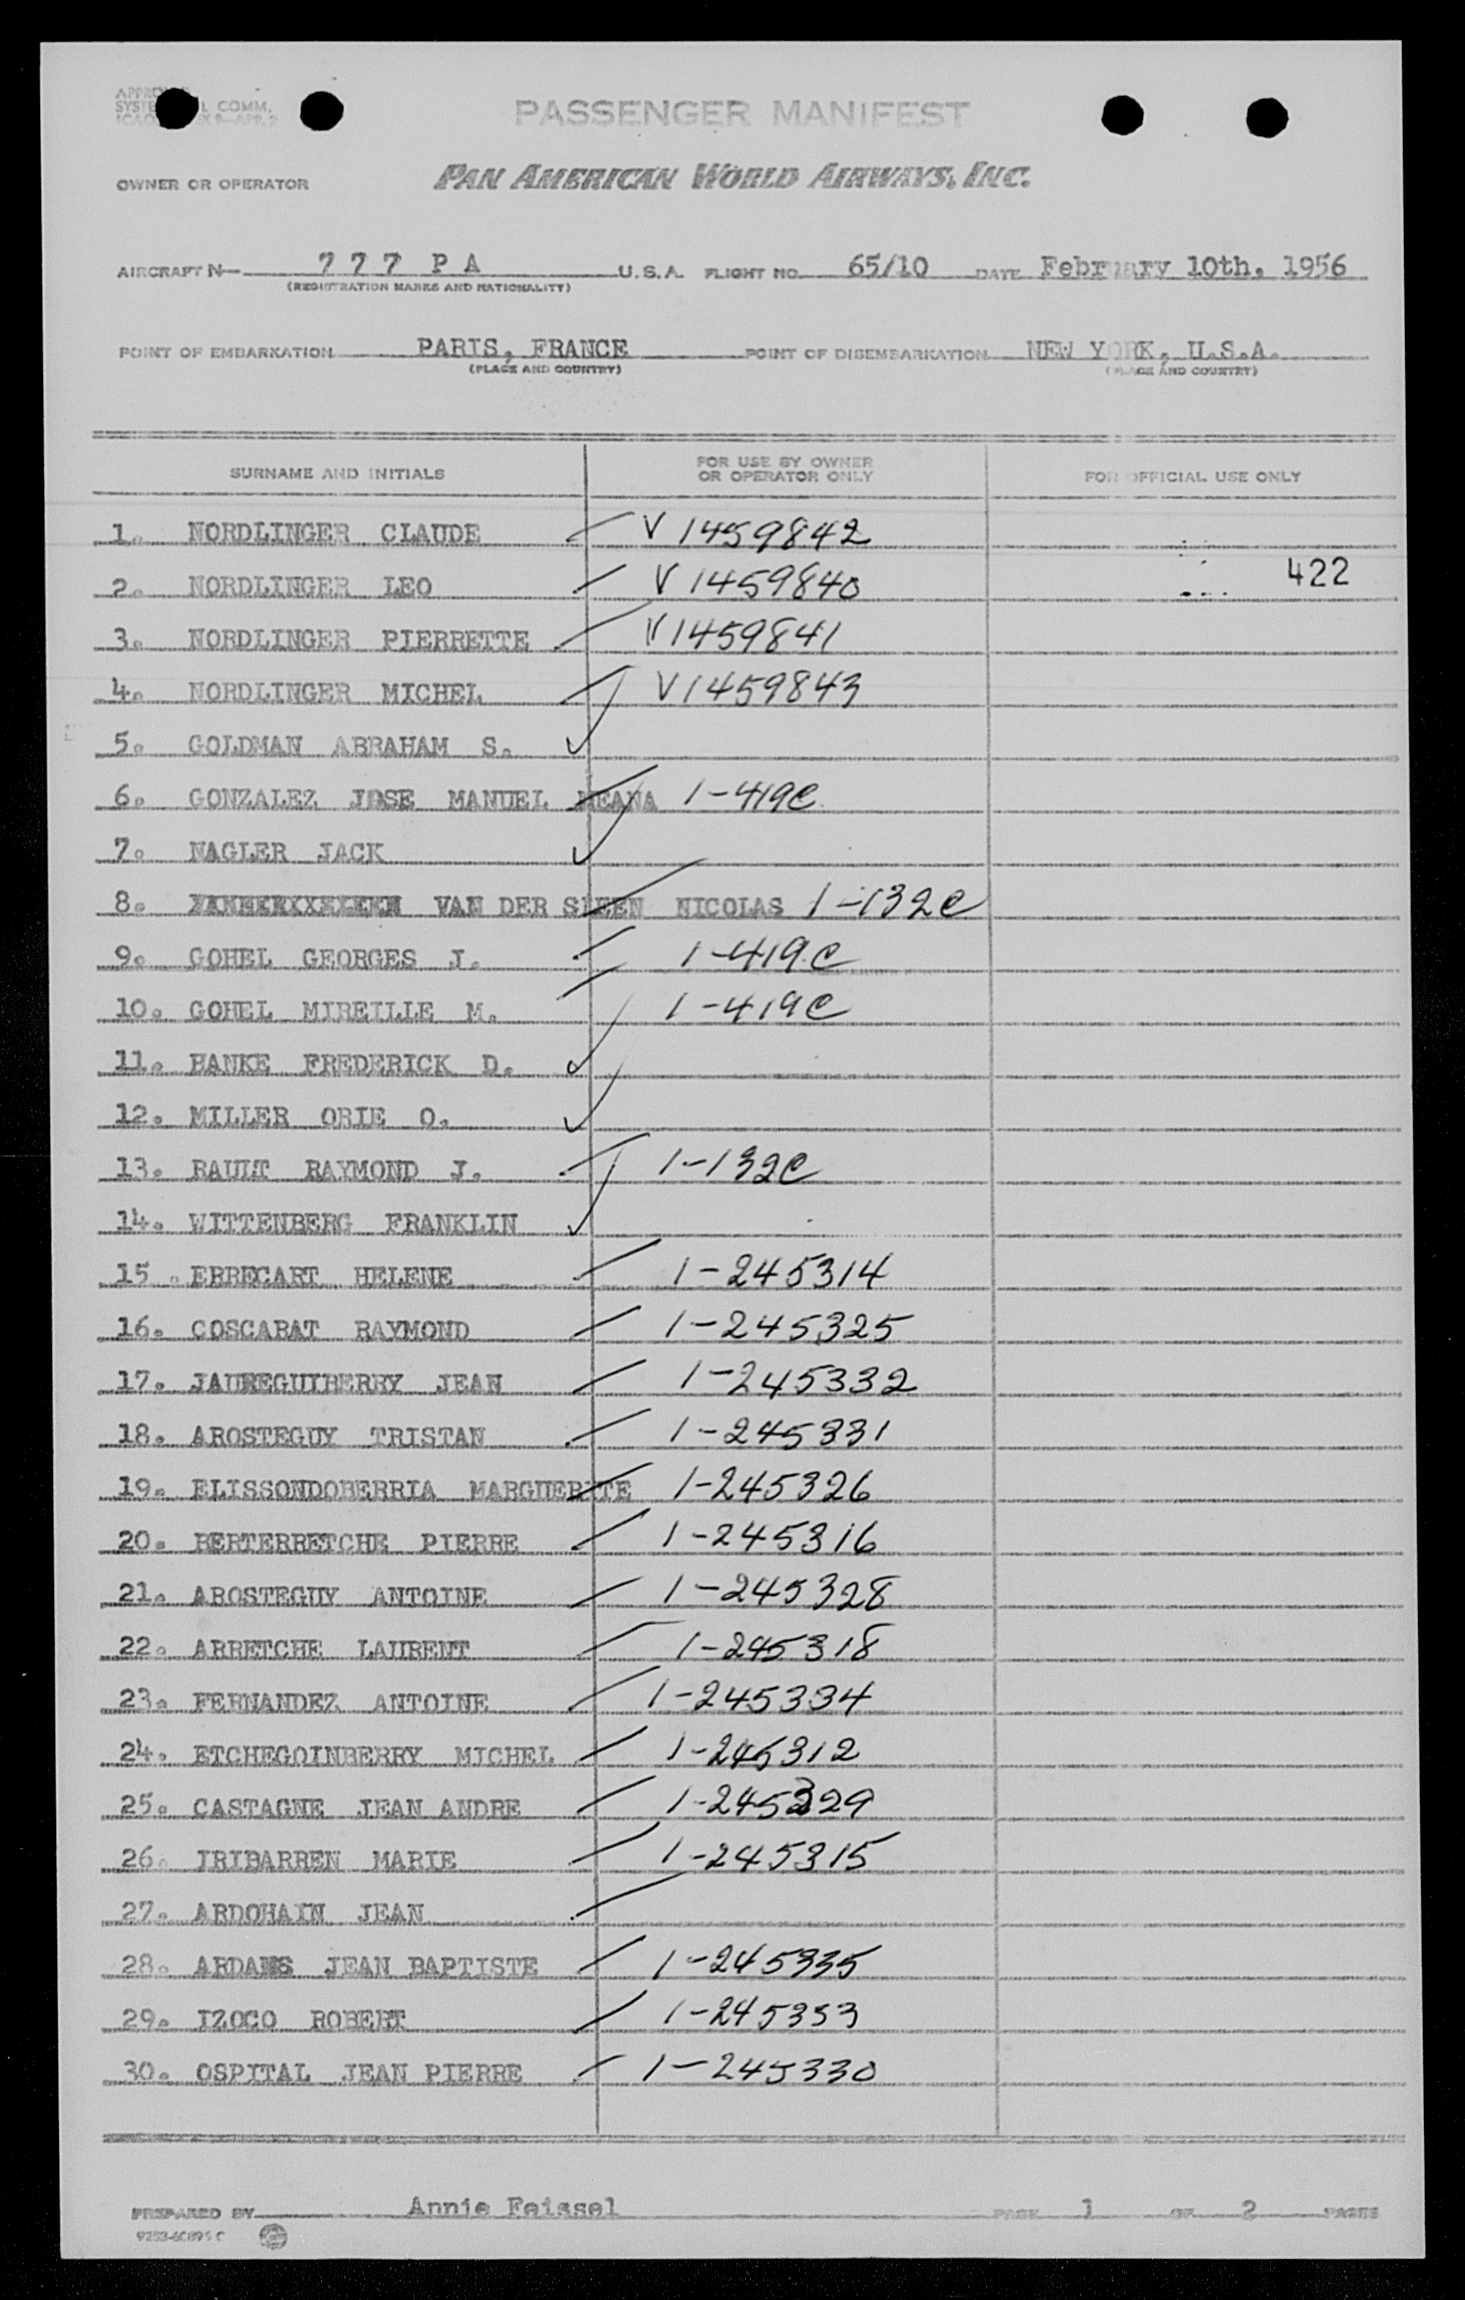 PASSENGER MANIFEST
OWNER OR OPERATOR PAN AMERICAN WORLD AIRWAYS, INC.
AIRCRAFT N- 777 PA U.S.A. FLIGHT NO. 65/10 DATE February 10th. 1956
(REGISTRATION MARKS AND NATIONALITY)
POINT OF EMBARKATION PARIS, FRANCE POINT OF DISEMBARKATION NEW YORK, U.S.A.
(PLACE AND COUNTRY) (PLACE AND COUNTRY)
SURNAME AND INITIALS FOR USE BY OWNER OR OPERATOR ONLY FOR OFFICIAL USE ONLY
1. NORDLINGER CLAUDE V 1459842
2. NORDLINGER LEO V 1459840 422
3. NORDLINGER PIERRETTE V1459841
4. NORDLINGER MICHEL V1459843
5. GOLDMAN ABRAHAM S.
6. GONZALEZ JOSE MANUEL MEANA 1-419C
7. NAGLER JACK
8. VAN DER SLEEN NICOLAS 1-132C
9. GOHEL GEORGES J. 1-419C
10. GOHEL MIREILLE M. 1-419C
11. HANKE FREDERICK D.
12. MILLER ORIE O.
13. RAULT RAYMOND J. 1-132C
14. WITTENBERG FRANKLIN
15. ERRECART HELENE 1-245314
16. COSCARAT RAYMOND 1-245325
17. JAUREGUIBERRY JEAN 1-245332
18. AROSTEGUY TRISTAN 1-245331
19. ELISSONDOBERRIA MARGUERITE 1-245326
20. BERTERRETCHE PIERRE 1-245316
21. AROSTEGUY ANTOINE 1-245328
22. ARRETCHE LAURENT 1-245318
23. FERNANDEZ ANTOINE 1-245334
24. ETCHEGOINBERRY MICHEL 1-245312
25. CASTAGNE JEAN ANDRE 1-245329
26. IRIBARREN MARIE 1-245315
27. ARDOHAIN JEAN
28. ARDANS JEAN BAPTISTE 1-245335
29. IZOCO ROBERT 1-245353
30. OSPITAL JEAN PIERRE 1-245330
PREPARED BY Annie Feissel PAGE 1 OF 2 PAGES